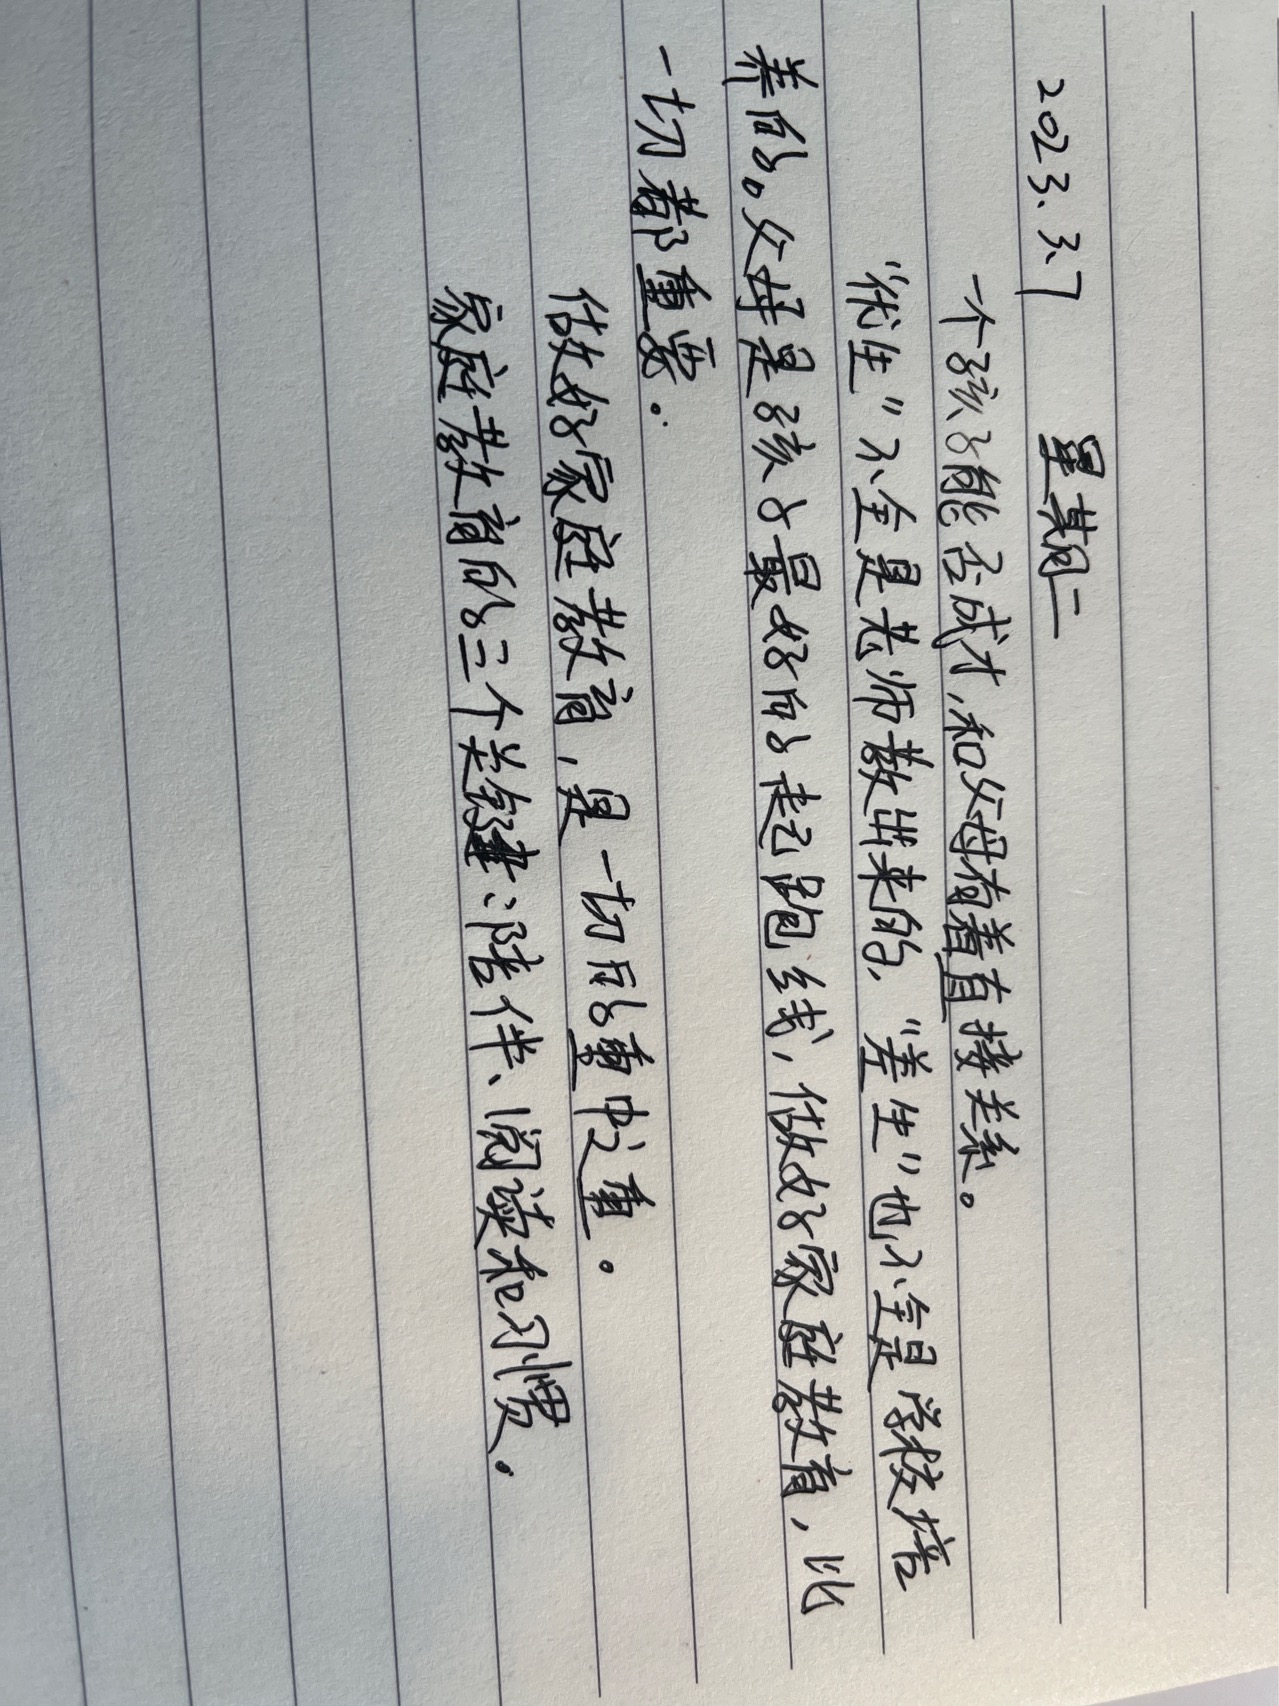 2023.3.7 星期二
一个孩子能否成才,和父母有着直接关系。
“优生”不全是老师教出来的,“差生”也不全是学校培
养的。父母是孩子最好的起跑线,做好家庭教育,比
一切都重要.
做好家庭教育,是一切的重中之重。
家庭教育的三个关键:陪伴、阅读和习惯.